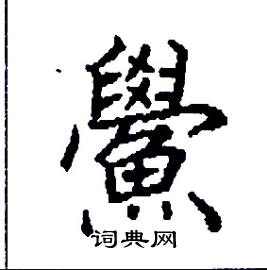 黌
词典网